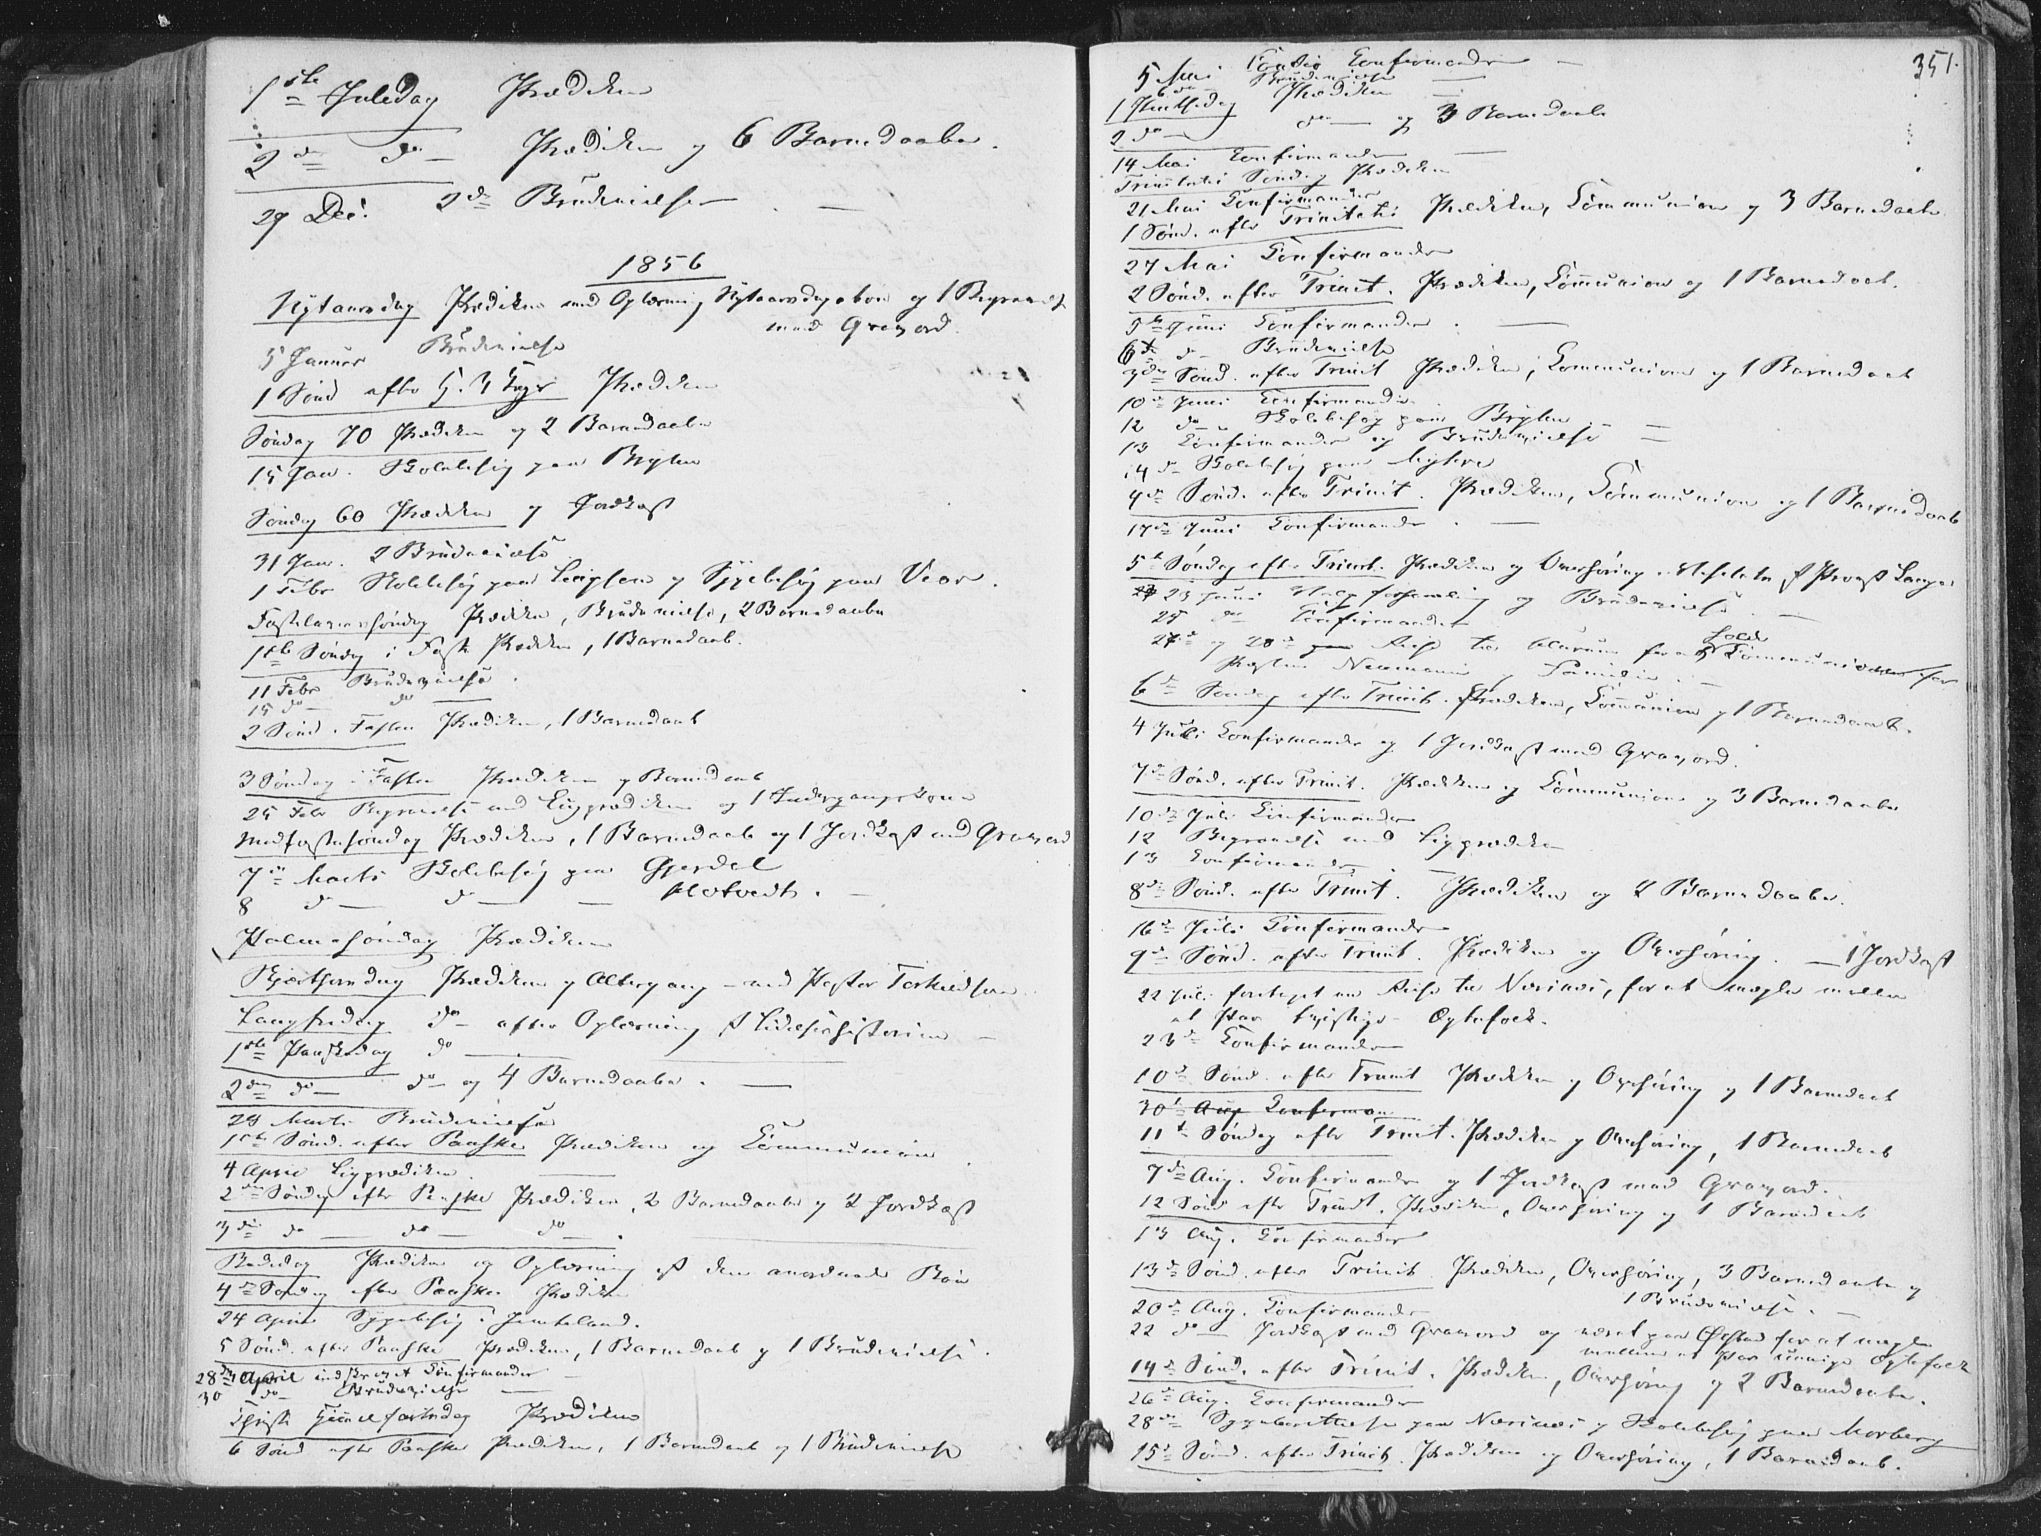 1ste Juledag Prædiken
2den do Prædiken og 6 Barnedaabe.
29 Dec. 2de Brudevielser
1856
Nytaarsdag Prædiken med Oplæsning Nytaarsdagsbøn og 1 Begravelse
med Gravord.
5 Januar Brudevielse
1 Sönd efter H. 3 Kgr Prædiken
Söndag 70 Prædiken og 2 Barnedaabe
15 Jan. Skolebesög paa
Söndag 60 Prædiken og Jordkast
31 Jan. 2 Brudevielse
1 Febr Skolebesög paa og Sygebesög paa
Fastelavnssöndag Prædiken, Brudevielse, 2 Barnedaabe
1ste Söndag i Fast. Prædiken, 1 Barnedaab.
11 Febr Brudevielse
15 do do
2 Sönd. i Fasten Prædiken, 1 Barnedaab
3 Söndag i Fasten Prædiken og Barnedaab
25 Febr Begravelse med Ligprædiken og 1 Indgangskone
Midfastesöndag Prædiken, 1 Barnedaab og 1 Jordkast med Gravord
7de Marts Skolebesög paa Gjerdel
8 do do Flotvedt.
Palmesöndag Prædiken
Skjærthorsdag Prædiken og Altergang med Pastor Terkildsen
Langfredag do efter Oplæsning af Lidelseshistorien
1ste Paaskedag do
2den do do og 4 Barnedaabe.
29 Marts Brudevielse
1ste Sönd. efter Paaske Prædiken og Communion
4 April Ligprædiken
2den Söndag efter Paaske Prædiken, 2 Barnedaabe og 2 Jordkast
3die do do do
Bededag Prædiken og Oplæsning af den anordnede Bön
4de Söndag efter Paaske Prædiken
24 April Sygebesög i
5 Sönd. efter Paaske Prædiken, 1 Barnedaab og 1 Brudevielse.
28de April indskrevet Confirmander
30 do Brudevielse
Christi Himmelfartsdag Prædiken
6 Sönd efter Paaske Prædiken, 1 Barnedaab og 1 Brudevielse
351.
5 Mai Confirmander
6 do Brudevielse
1 Pintsedag Prædiken
2 do do og 3 Barnedaabe
14 Mai Confirmander
Trinitatis Söndag Prædiken
21 Mai Confirmander
1 Sönd. efter Trinitatis Prædiken, Communion og 3 Barnedaabe
27 Mai Confirmander
2 Sönd. efter Trinit. Prædiken, Communion og 1 Barnedaab.
5te Juni Confirmander
6te do Brudevielse
3die Sönd. efter Trinit Prædiken, Communion og 1 Barnedaab
10de Juni Confirmander
12 do Skolebesög paa
13 Confirmander og Brudevielse
14 do Skolebesög paa
4de Sönd. efter Trinit. Prædiken, Communion og 1 Barnedaab
17de Juni Confirmander
5te Söndag efter Trinit. Prædiken og Overhöring af Provst
23 Juni og Brudevielse
25 do Confirmander
27de og 28de Reise til for at Communion
Pastor
6te Söndag efter Trinit. Prædiken, Communion og 1 Barnedaab.
4 Juli Confirmander og 1 Jordkast med Gravord.
7de Sönd. efter Trinit. Prædiken og Communion og 3 Barnedaabe
10de Juli Confirmander
12 Begravelse med Ligprædiken
13 Confirmander
8de Sönd. efter Trinit. Prædiken og 2 Barnedaabe.
16de Juli Confirmander
9de Sönd. efter Trinit. Prædiken og Overhöring. 1 Jordkast
22 Juli foretaget en Reise til, for at mægle mellem
et Par Ægtefolk.
23de Confirmander
10de Sönd. efter Trinit Prædiken og Overhöring og 1 Barnedaab
30te Aug Confirman
11te Söndag efter Trinit. Prædiken og Overhöring, 1 Barnedaab
7de Aug. Confirmander og 1 Jordkast med Gravord.
12 Sönd efter Trinit. Prædiken, Overhöring og 1 Barnedaab
13 Aug. Confirmander
13de Sönd. efter Trinit Prædiken, Overhöring, 3 Barnedaabe og
1 Brudevielse.
20de Aug. Confirmander
22 do Jordkast med Gravord og været paa for at mægle
mellem et Par uenige Ægtefolk
14de Sönd. efter Trinit. Prædiken, Overhöring og 2 Barnedaabe.
26de Aug. Confirmander
28de Sygeberettelse paa og Skolebesög paa Morberg
15de Sönd. efter Trinit. Prædiken og Overhöring, 1 Barnedaab.